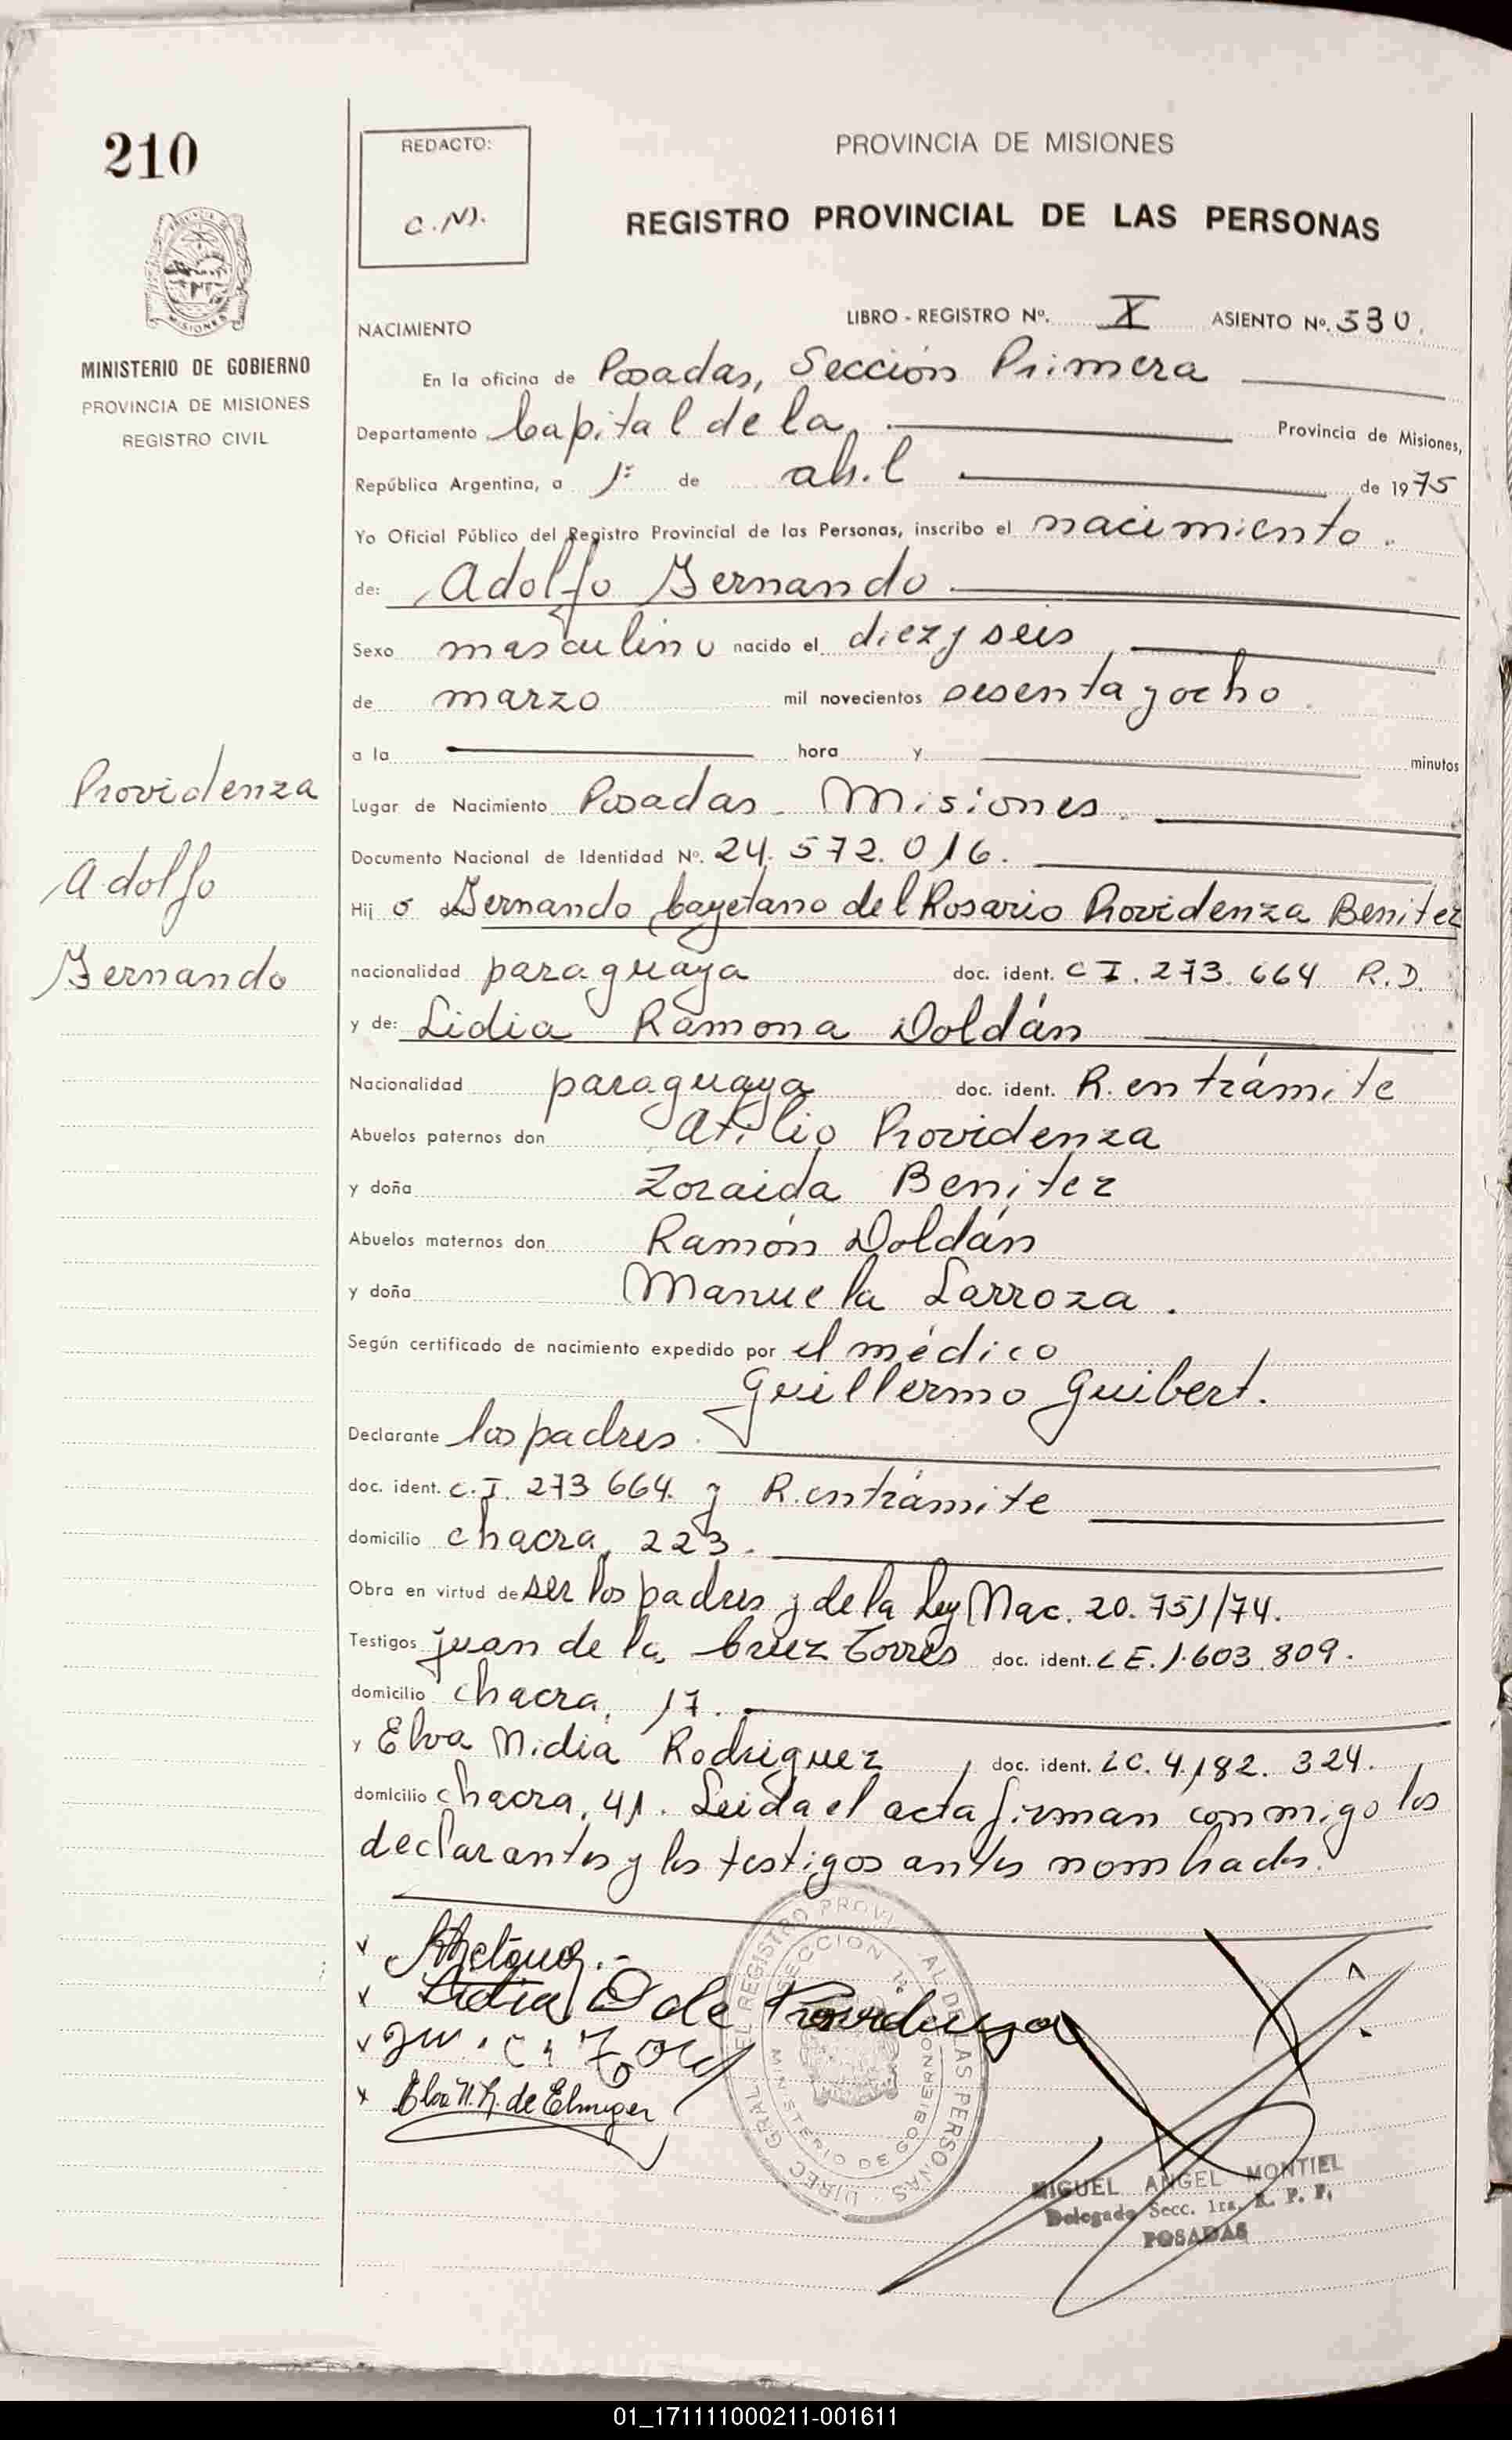 210
MINISTERIO DE GOBIERNO
PROVINCIA DE MISIONES
REGISTRO CIVIL
Providenza
Adolfo
Fernando
REDACTO:
C.N.
PROVINCIA DE MISIONES
REGISTRO PROVINCIAL DE LAS PERSONAS
LIBRO - REGISTRO Nº. X ASIENTO Nº. 530.
NACIMIENTO
En la oficina de Posadas, Sección Primera
Departamento Capital de la Provincia de Misiones,
República Argentina, a 1º de abril de 1975
Yo Oficial Público del Registro Provincial de las Personas, inscribo el nacimiento.
de: Adolfo Fernando
Sexo masculino nacido el diez y seis
de marzo mil novecientos sesenta y ocho
a la hora y minutos
Lugar de Nacimiento Posadas - Misiones.
Documento Nacional de Identidad Nº. 24.572.016.
Hij o de Fernando Cayetano del Rosario Providenza Benitez
nacionalidad paraguaya doc. ident. C I. 273.664 R.D.
y de: Lidia Ramona Doldán
Nacionalidad paraguaya doc. ident. R. en trámite
Abuelos paternos don Atilio Providenza
y doña Zoraida Benitez
Abuelos maternos don Ramón Doldán
y doña Manuela Larroza.
Según certificado de nacimiento expedido por el médico
Guillermo Guibert.
Declarante los padres.
doc. ident. C.I. 273 664. y R. en trámite
domicilio chacra, 223.
Obra en virtud de ser los padres y de la Ley Nac. 20.751/74.
Testigos Juan de la Cruz Torres doc. ident. L E. 1.603.809.
domicilio chacra, 17.
y Elva Nidia Rodriguez doc. ident. L C. 4,182. 324.
domicilio chacra, 41. Leida el acta firman conmigo los
declarantes y los testigos antes nombrados.
x
x Lidia D de Providenza
x
x Elva N. R. de Elmiger
DIREC. GRAL. DEL REGISTRO PROVINCIAL DE LAS PERSONAS
SECCION 1ª
MINISTERIO DE GOBIERNO
MIGUEL ANGEL MONTIEL
Delegado Secc. 1ra. R. P. P.
POSADAS
01_171111000211-001611